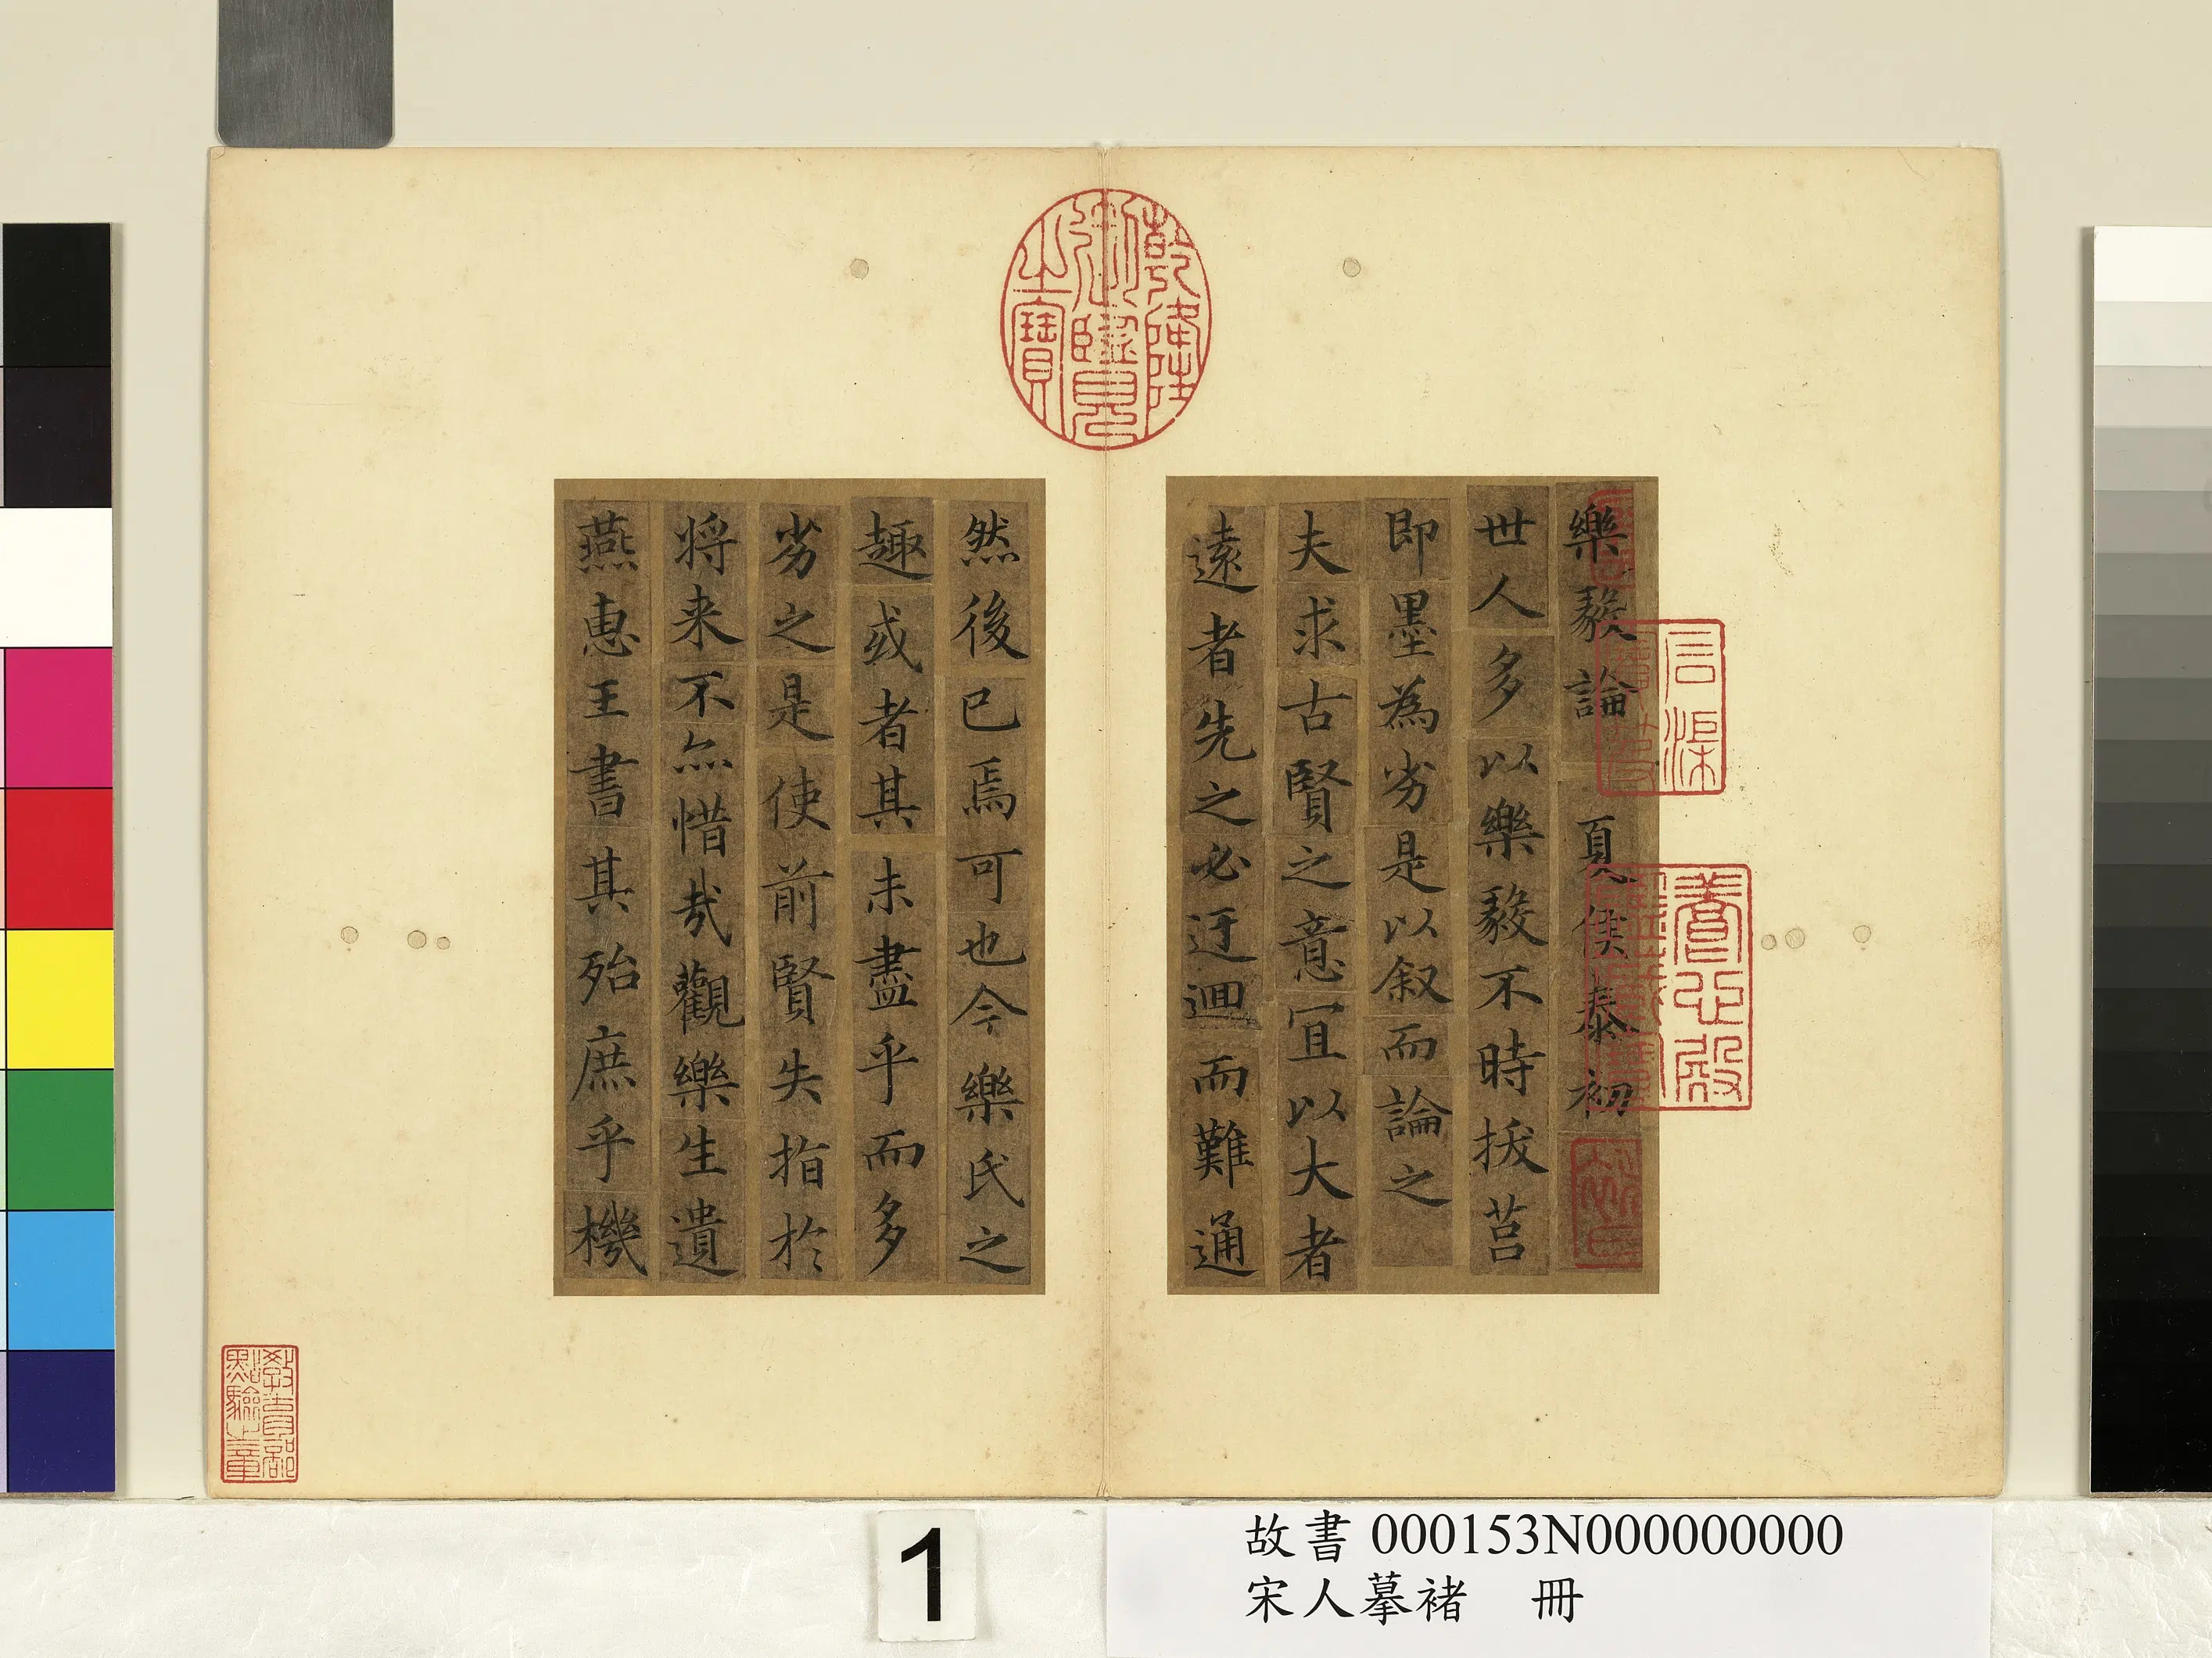 樂毅論 夏侯泰初
世人多以樂毅不時拔莒
即墨為劣是以叙而論之
夫求古賢之意宜以大者
遠者先之必迂迴而難通
然後已焉可也今樂氏之
趣或者其未盡乎而多
劣之是使前賢失指於
將来不亦惜哉觀樂生遺
燕惠王書其殆庶乎機
乾隆御覽之寶
石渠寶笈
養心殿鑑藏寶
教育部點驗之章
1
故書 000153N000000000
宋人摹褚 冊